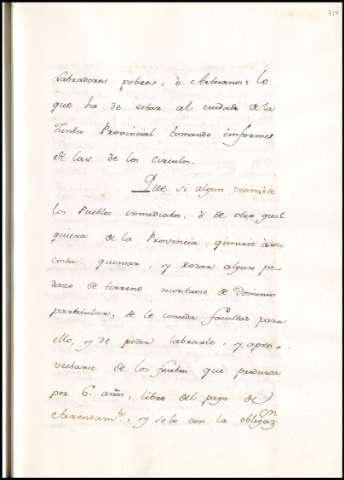 Labradores pobres, ò Artesanos: lo
que ha de estar al cuidado de la
Junta Provincial tomando informes
de las de los circulos.
Que si algun vecino de
los Pueblos inmediatos, ò de otra qual
quiera de la Provincia, quisiere à su
costa quemar, y rozar algun pe
dazo de terreno montuoso de Dominio
particular, se le conceda facultad para
ello, y de poder labrarlo, y apro-
vecharse de los frutos que produzca
por 6. años, libre del pago de
Arrendam.to, y solo con la obligaz.on